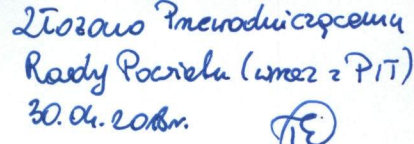 Złożono Przewodniczącemu
Rady Powiatu (wraz z PIT)
30.04.2018r.